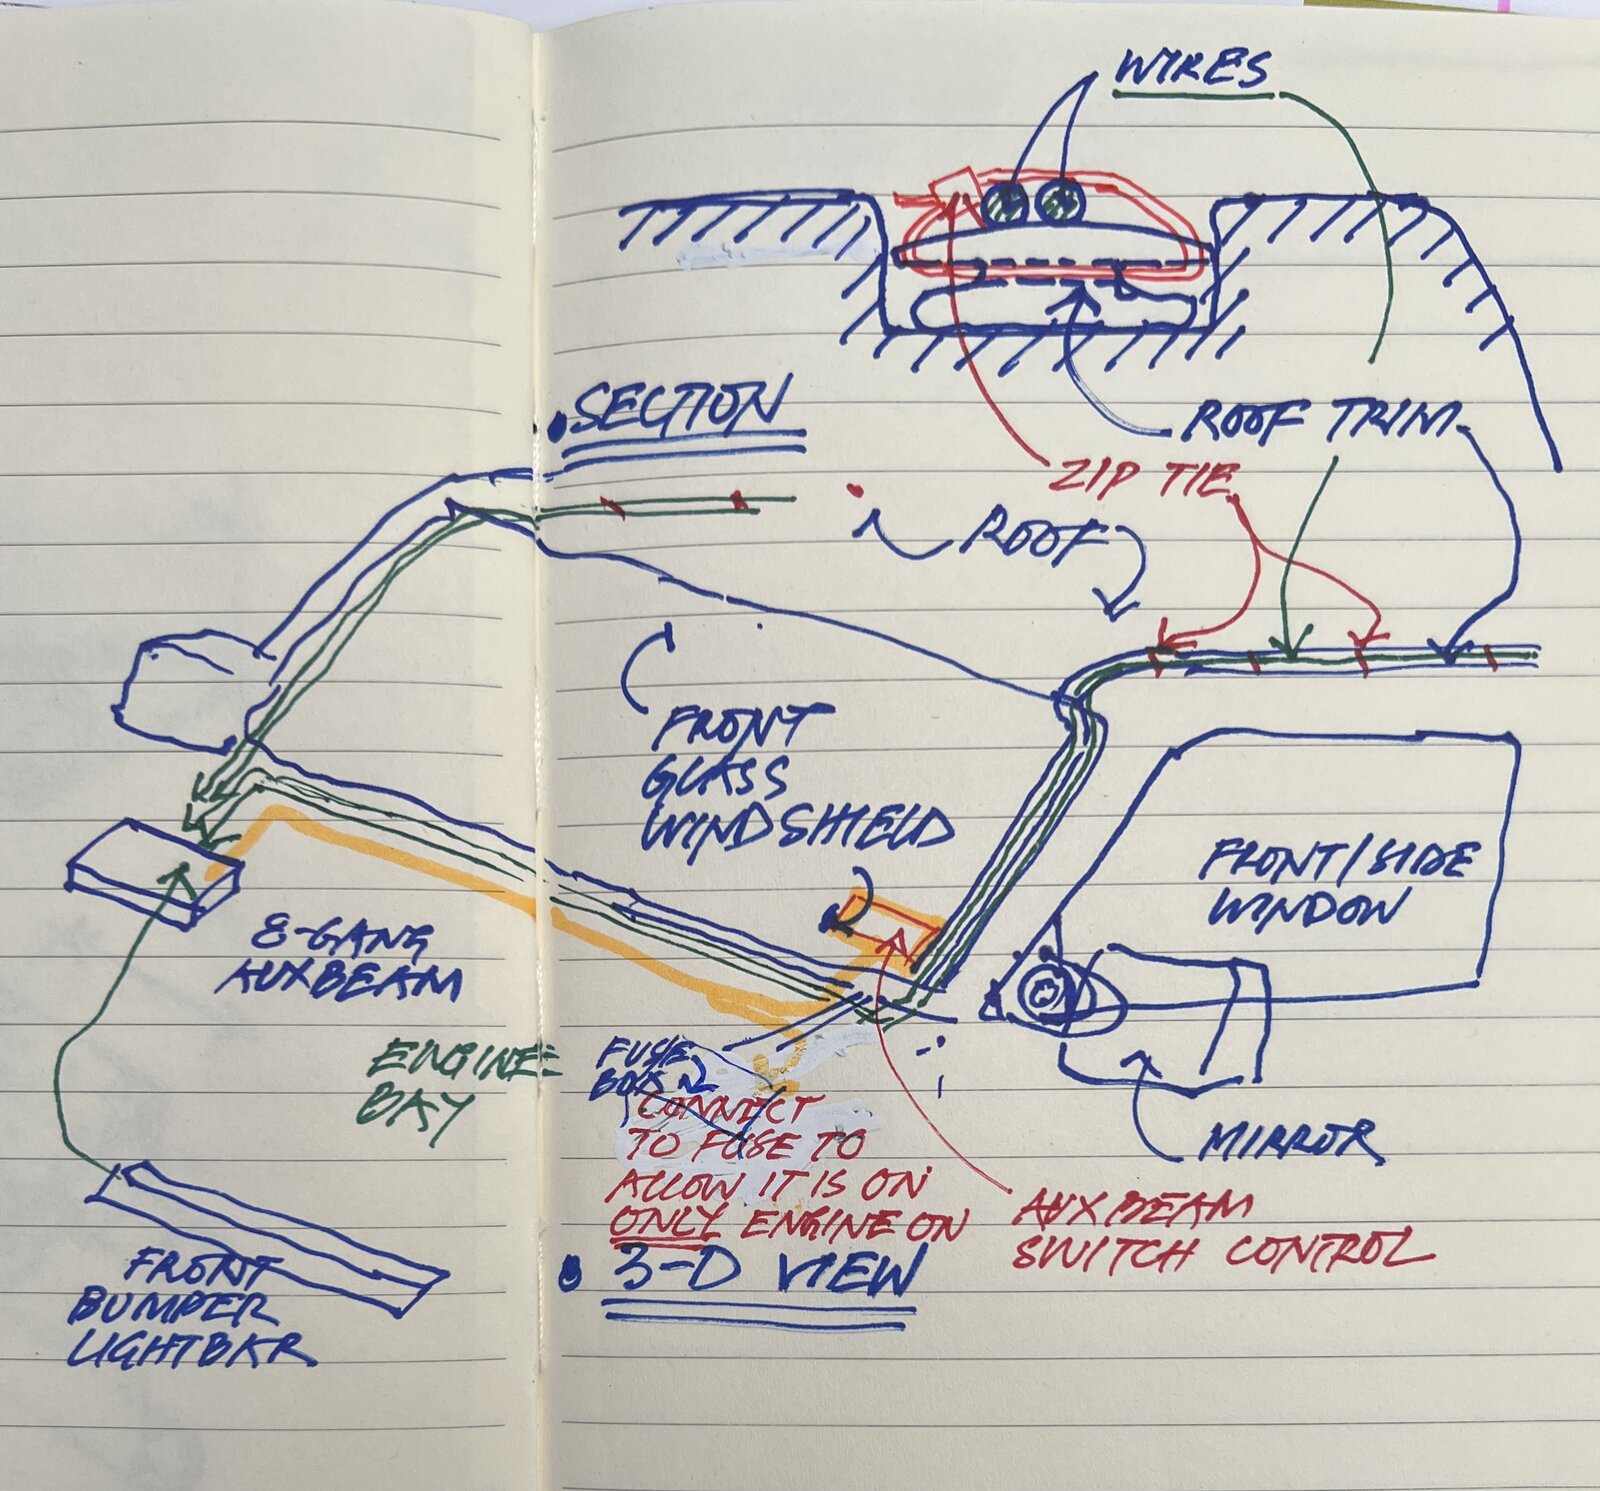 WIRES
• SECTION
ROOF TRIM
ZIP TIE
ROOF
FRONT
GLASS
WINDSHIELD
FRONT/SIDE
WINDOW
8-GANG
AUXBEAM
ENGINE
BAY
FUSE
BOX
CONNECT
TO FUSE TO
ALLOW IT IS ON
ONLY ENGINE ON
MIRROR
AUXBEAM
SWITCH CONTROL
• 3-D VIEW
FRONT
BUMPER
LIGHTBAR